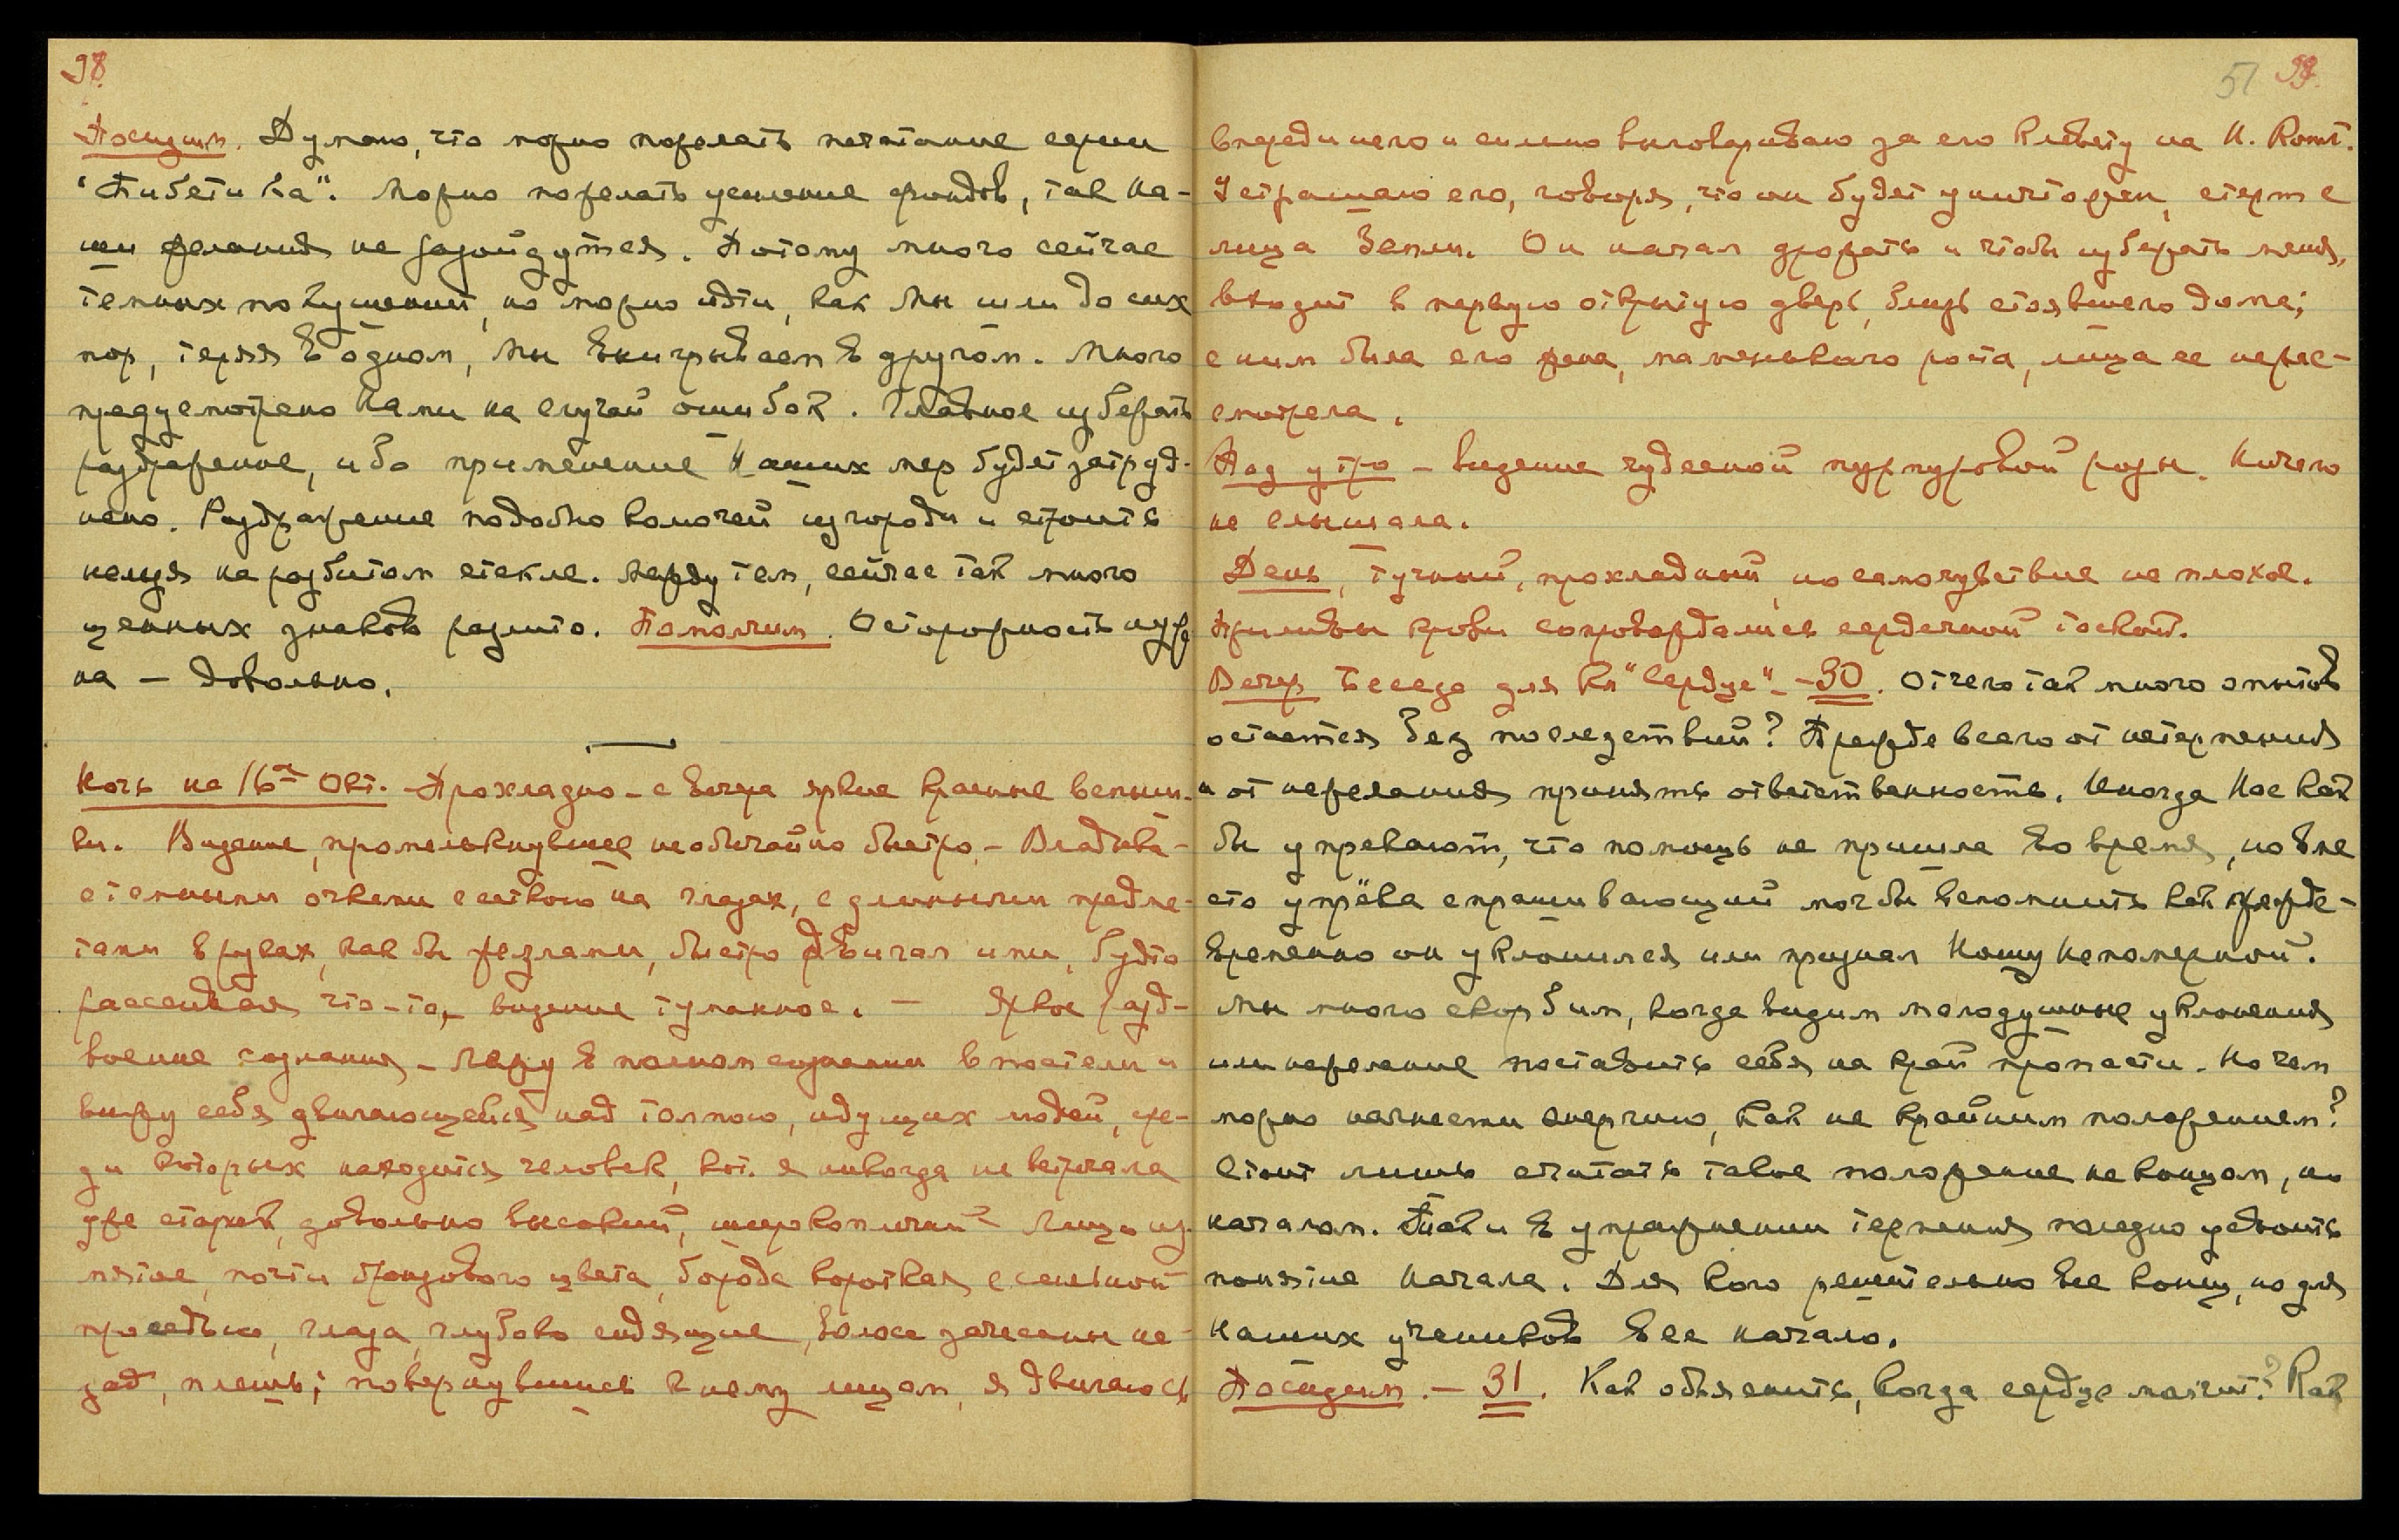 98.
Посидим. Думаю, что можно пожелать печатание серии
"Тибетика". Можно пожелать усиление фондов, так На-
ши желания не разойдутся. Потому много сейчас
темных покушений, но можно идти, как Мы шли до сих
пор, теряя в одном, Мы выигрываем в другом. Много
предусмотрено Нами на случай ошибок. Главное избегать
раздражение, ибо применение Наших мер будет затруд-
нено. Раздражение подобно колючей изгороди и строить
нельзя на разбитом стекле. Между тем, сейчас так много
ценных знаков разлито. Помолчим. Осторожность нуж
на — довольно.
Ночь на 16ое Окт. — Прохладно — с вечера яркие красные вспыш-
ки. Видение, промелькнувшее необычайно быстро — Владыка
с темными очками сеткою на глазах, с длинными предме-
тами в руках, как бы жезлами, быстро двигал ими, будто
рассеивая что-то, — видение туманное. — Яркое разд-
воение сознания — Лежу в полном сознании в постели и
вижу себя двигающейся над толпою, идущих людей, сре-
ди которых находится человек, кот. я никогда не встречала
уже старый, довольно высокий, широкоплечий Лицо из-
мятое, почти бронзового цвета, борода короткая с сильной
проседью, глаза, глубоко сидящие, волосы зачесаны на-
зад, плешь; повернувшись к нему лицом, я двигаюсь
51 99.
впереди него и сильно выговариваю за его клевету на Н. Конт.
Устрашаю его, говоря, что он будет уничтожен, стерт с
лица Земли. Он начал дрожать и чтобы избежать меня,
входит в первую открытую дверь, близь стоявшего дома;
с ним была его жена, маленького роста, лица ее нерас-
смотрела.
Под утро — видение чудесной пурпуровой розы. Ничего
не слышала.
День, тучный, прохладный, но самочувствие не плохое.
Приливы крови сопровождались сердечной тоской.
Вечер Беседа для Кн "Сердце" — 30. Отчего так много опытов
остается без последствий? Прежде всего от нетерпения
и от нежелания принять ответственность. Иногда Нас как
бы упрекают, что помощь не пришла во время, но вме
сто упрёка спрашивающий мог бы вспомнить как прежде-
временно он уклонился или признал Ношу непомерной.
Мы много скорбим, когда видим малодушные уклонения
или нежелание поставить себя на край пропасти. Но чем
можно нагнести энергию, как не крайним положением?
Стоит лишь считать такое положение не концом, но
началом. Так и в упражнении терпения полезно усвоить
понятие Начала. Для кого решительно все конец, но для
Наших учеников все начало.
Посидим. — 31. Как объяснить, когда сердце молчит? Как